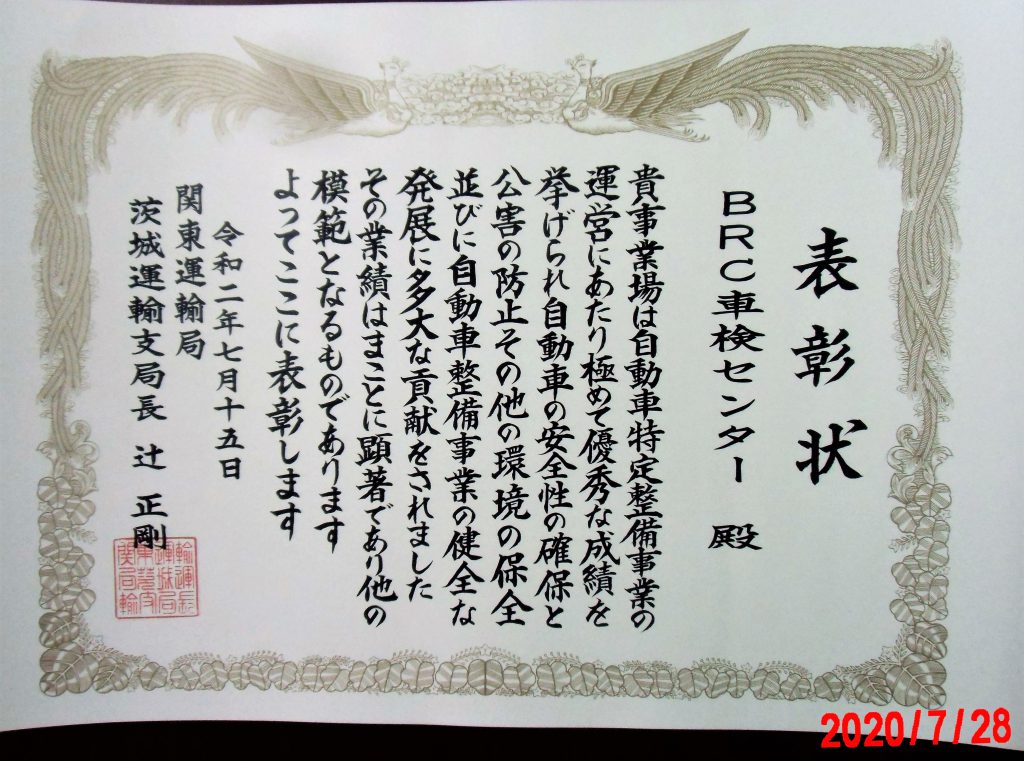 表彰状
BRC車検センター 殿
貴事業場は自動車特定整備事業の
運営にあたり極めて優秀な成績を
挙げられ自動車の安全性の確保と
公害の防止その他の環境の保全
並びに自動車整備事業の健全な
発展に多大な貢献をされました
その業績はまことに顕著であり他の
模範となるものであります
よってここに表彰します
令和二年七月十五日
関東運輸局
茨城運輸支局長 辻 正剛
2020/7/28